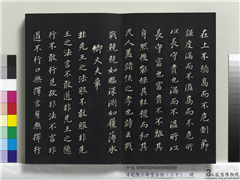 在上不驕高而不危制節
謹度滿而不溢高而不危所
以長守貴也滿而不溢所以
長守富也富貴不離其
身然後能保其社稷而和其
民人蓋諸侯之孝也詩云戰
戰兢兢如臨深淵如履薄冰
卿大夫章
非先王之法服不敢服非先
王之法言不敢道非先王之德
行不敢行是故非法不言非
道不行口無擇言身無擇行